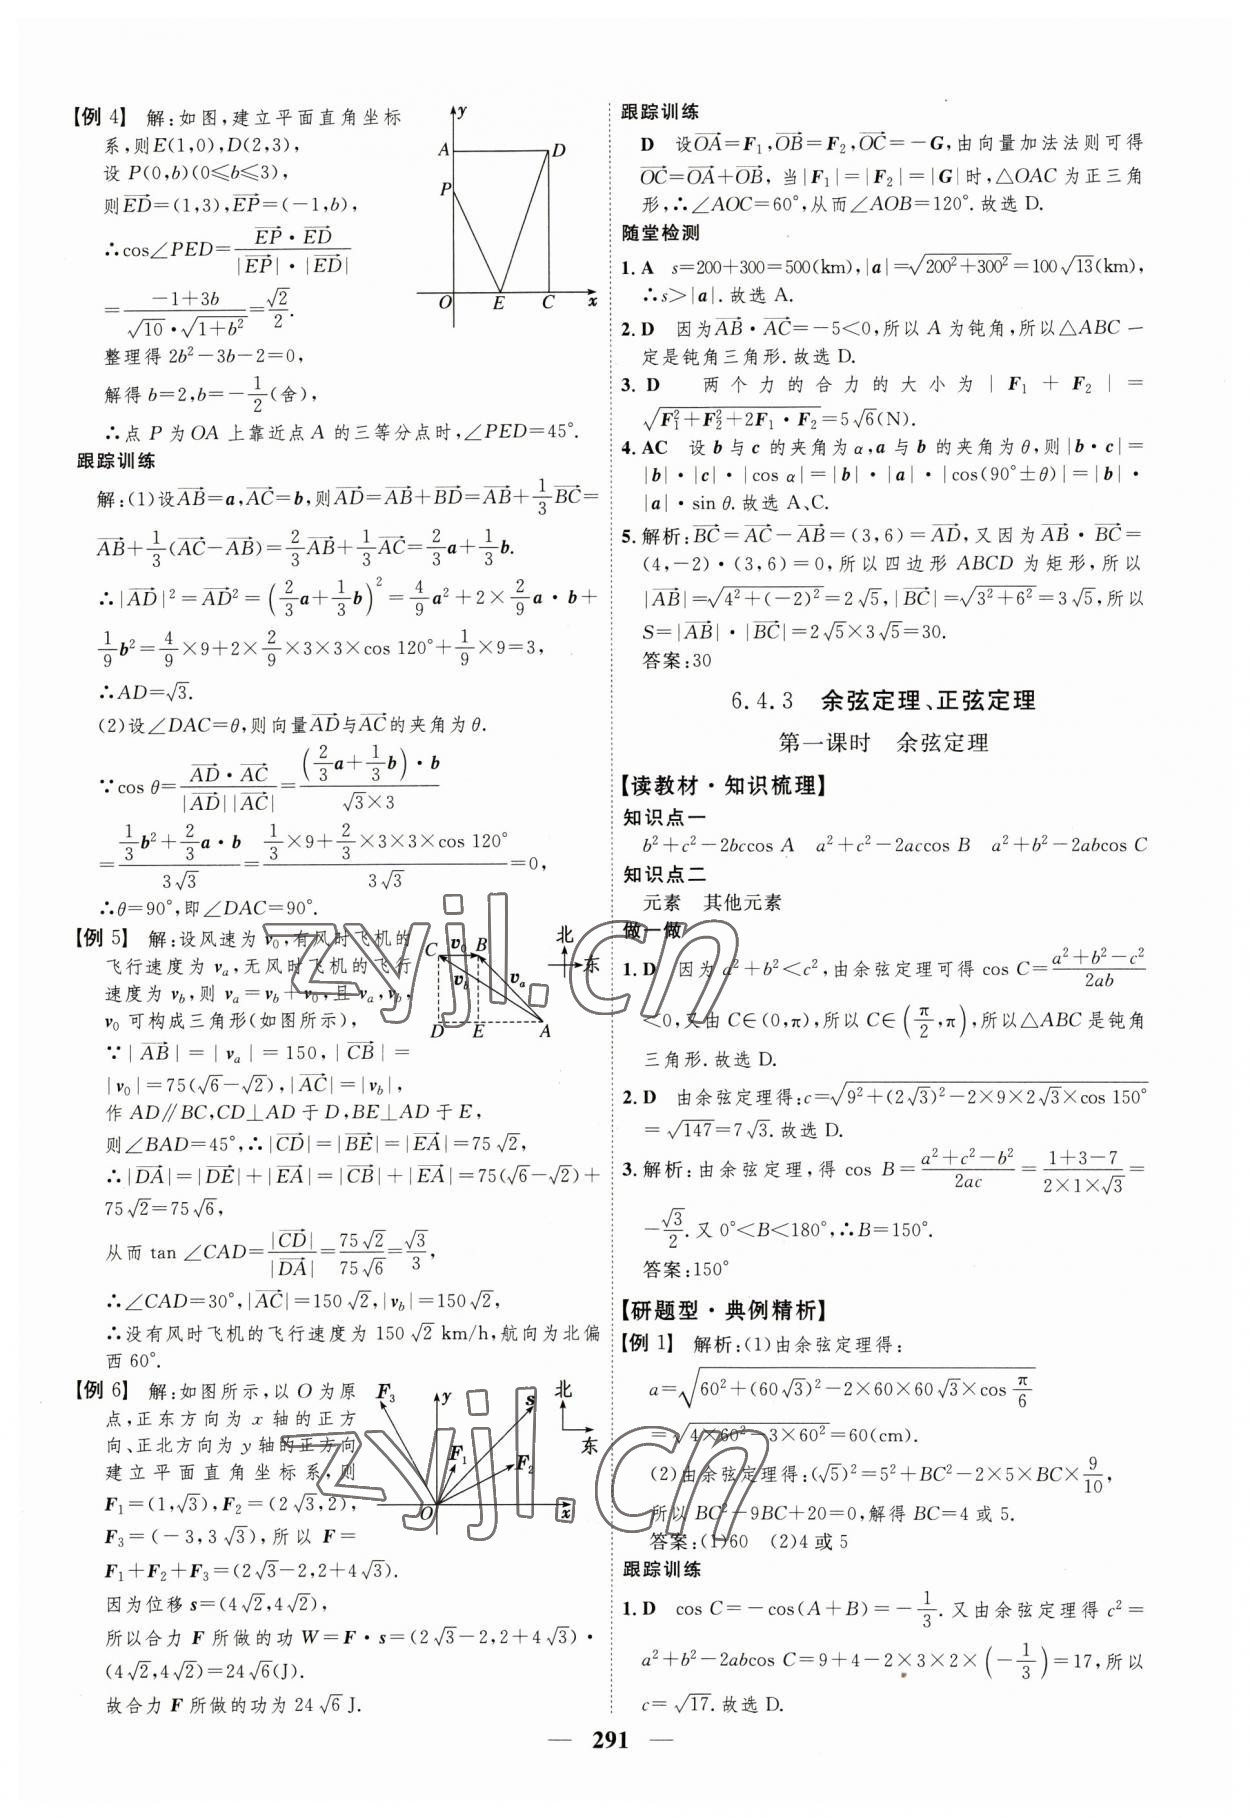 【例 4】 解:如图,建立平面直角坐标
系,则E(1,0),D(2,3),
设 P(0,b)(0≤b≤3),
则$\overrightarrow{ED}$=(1,3),$\overrightarrow{EP}$=(-1,b),
∴cos∠PED=$\frac{\overrightarrow{EP}·\overrightarrow{ED}}{|\overrightarrow{EP}|·|\overrightarrow{ED}|}$
=$\frac{-1+3b}{\sqrt{10}·\sqrt{1+b^2}}$=$\frac{\sqrt{2}}{2}$.
整理得 2b²-3b-2=0,
解得 b=2,b=-$\frac{1}{2}$(舍),
∴点 P 为 OA 上靠近点 A 的三等分点时,∠PED=45°.
y
A
D
P
O
E
C
x
跟踪训练
解:(1)设$\overrightarrow{AB}$=a,$\overrightarrow{AC}$=b,则$\overrightarrow{AD}$=$\overrightarrow{AB}$+$\overrightarrow{BD}$=$\overrightarrow{AB}$+$\frac{1}{3}\overrightarrow{BC}$=
$\overrightarrow{AB}$+$\frac{1}{3}$($\overrightarrow{AC}$-$\overrightarrow{AB}$)=$\frac{2}{3}\overrightarrow{AB}$+$\frac{1}{3}\overrightarrow{AC}$=$\frac{2}{3}$a+$\frac{1}{3}$b.
∴|$\overrightarrow{AD}$|²=$\overrightarrow{AD}$²=$\left(\frac{2}{3}a+\frac{1}{3}b\right)^2$=$\frac{4}{9}$a²+2×$\frac{2}{9}$a·b+
$\frac{1}{9}$b²=$\frac{4}{9}$×9+2×$\frac{2}{9}$×3×3×cos 120°+$\frac{1}{9}$×9=3,
∴AD=$\sqrt{3}$.
(2)设∠DAC=θ,则向量$\overrightarrow{AD}$与$\overrightarrow{AC}$的夹角为 θ.
∵cos θ=$\frac{\overrightarrow{AD}·\overrightarrow{AC}}{|\overrightarrow{AD}||\overrightarrow{AC}|}$=$\frac{\left(\frac{2}{3}a+\frac{1}{3}b\right)·b}{\sqrt{3}×3}$
=$\frac{\frac{1}{3}b^2+\frac{2}{3}a·b}{3\sqrt{3}}$=$\frac{\frac{1}{3}×9+\frac{2}{3}×3×3×cos 120°}{3\sqrt{3}}$=0,
∴θ=90°,即∠DAC=90°.
【例 5】 解:设风速为 v₀,有风时飞机的
飞行速度为 vₐ,无风时飞机的飞行
速度为 v_b,则 vₐ=v_b+v₀,且 vₐ,v_b,
v₀ 可构成三角形(如图所示),
∵|$\overrightarrow{AB}$|=|vₐ|=150,|$\overrightarrow{CB}$|=
|v₀|=75($\sqrt{6}$-$\sqrt{2}$),|$\overrightarrow{AC}$|=|v_b|,
作 AD∥BC,CD⊥AD 于 D,BE⊥AD 于 E,
则∠BAD=45°,∴|$\overrightarrow{CD}$|=|$\overrightarrow{BE}$|=|$\overrightarrow{EA}$|=75$\sqrt{2}$,
∴|$\overrightarrow{DA}$|=|$\overrightarrow{DE}$|+|$\overrightarrow{EA}$|=|$\overrightarrow{CB}$|+|$\overrightarrow{EA}$|=75($\sqrt{6}$-$\sqrt{2}$)+
75$\sqrt{2}$=75$\sqrt{6}$,
从而 tan ∠CAD=$\frac{|\overrightarrow{CD}|}{|\overrightarrow{DA}|}$=$\frac{75\sqrt{2}}{75\sqrt{6}}$=$\frac{\sqrt{3}}{3}$,
∴∠CAD=30°,|$\overrightarrow{AC}$|=150$\sqrt{2}$,|v_b|=150$\sqrt{2}$,
∴没有风时飞机的飞行速度为 150$\sqrt{2}$ km/h,航向为北偏
西 60°.
C
v₀
B
北
东
v_b
vₐ
D
E
A
【例 6】 解:如图所示,以 O 为原
点,正东方向为 x 轴的正方
向、正北方向为 y 轴的正方向
建立平面直角坐标系,则
F₁=(1,$\sqrt{3}$),F₂=(2$\sqrt{3}$,2),
F₃=(-3,3$\sqrt{3}$),所以 F=
F₁+F₂+F₃=(2$\sqrt{3}$-2,2+4$\sqrt{3}$).
因为位移 s=(4$\sqrt{2}$,4$\sqrt{2}$),
所以合力 F 所做的功 W=F·s=(2$\sqrt{3}$-2,2+4$\sqrt{3}$)·
(4$\sqrt{2}$,4$\sqrt{2}$)=24$\sqrt{6}$(J).
故合力 F 所做的功为 24$\sqrt{6}$ J.
F₃
y
s
北
东
F₁
F₂
O
x
跟踪训练
D 设$\overrightarrow{OA}$=F₁,$\overrightarrow{OB}$=F₂,$\overrightarrow{OC}$=-G,由向量加法法则可得
$\overrightarrow{OC}$=$\overrightarrow{OA}$+$\overrightarrow{OB}$,当|F₁|=|F₂|=|G|时,△OAC 为正三角
形,∴∠AOC=60°,从而∠AOB=120°.故选 D.
随堂检测
1. A s=200+300=500(km),|a|=$\sqrt{200^2+300^2}$=100$\sqrt{13}$(km),
∴s>|a|.故选 A.
2. D 因为$\overrightarrow{AB}$·$\overrightarrow{AC}$=-5<0,所以 A 为钝角,所以△ABC 一
定是钝角三角形.故选 D.
3. D 两个力的合力的大小为|F₁+F₂|=
$\sqrt{F_1^2+F_2^2+2F_1·F_2}$=5$\sqrt{6}$(N).
4. AC 设 b 与 c 的夹角为 α,a 与 b 的夹角为 θ,则|b·c|=
|b|·|c|·|cos α|=|b|·|a|·|cos(90°±θ)|=|b|·
|a|·sin θ.故选 A、C.
5. 解析:$\overrightarrow{BC}$=$\overrightarrow{AC}$-$\overrightarrow{AB}$=(3,6)=$\overrightarrow{AD}$,又因为$\overrightarrow{AB}$·$\overrightarrow{BC}$=
(4,-2)·(3,6)=0,所以四边形 ABCD 为矩形,所以
|$\overrightarrow{AB}$|=$\sqrt{4^2+(-2)^2}$=2$\sqrt{5}$,|$\overrightarrow{BC}$|=$\sqrt{3^2+6^2}$=3$\sqrt{5}$,所以
S=|$\overrightarrow{AB}$|·|$\overrightarrow{BC}$|=2$\sqrt{5}$×3$\sqrt{5}$=30.
答案:30
6.4.3 余弦定理、正弦定理
第一课时 余弦定理
【读教材·知识梳理】
知识点一
b²+c²-2bccos A a²+c²-2accos B a²+b²-2abcos C
知识点二
元素 其他元素
做一做
1. D 因为 a²+b²<c²,由余弦定理可得 cos C=$\frac{a^2+b^2-c^2}{2ab}$
<0,又由 C∈(0,π),所以 C∈$\left(\frac{π}{2},π\right)$,所以△ABC 是钝角
三角形.故选 D.
2. D 由余弦定理得:c=$\sqrt{9^2+(2\sqrt{3})^2-2×9×2\sqrt{3}×cos 150°}$
=$\sqrt{147}$=7$\sqrt{3}$.故选 D.
3. 解析:由余弦定理,得 cos B=$\frac{a^2+c^2-b^2}{2ac}$=$\frac{1+3-7}{2×1×\sqrt{3}}$=
-$\frac{\sqrt{3}}{2}$.又 0°<B<180°,∴B=150°.
答案:150°
【研题型·典例精析】
【例 1】 解析:(1)由余弦定理得:
a=$\sqrt{60^2+(60\sqrt{3})^2-2×60×60\sqrt{3}×cos\frac{π}{6}}$
=$\sqrt{4×60^2-3×60^2}$=60(cm).
(2)由余弦定理得:($\sqrt{5}$)²=5²+BC²-2×5×BC×$\frac{9}{10}$,
所以 BC²-9BC+20=0,解得 BC=4 或 5.
答案:(1)60 (2)4 或 5
跟踪训练
1. D cos C=-cos(A+B)=-$\frac{1}{3}$.又由余弦定理得 c²=
a²+b²-2abcos C=9+4-2×3×2×$\left(-\frac{1}{3}\right)$=17,所以
c=$\sqrt{17}$.故选 D.
— 291 —
zyjl.cn
zyjl.cn